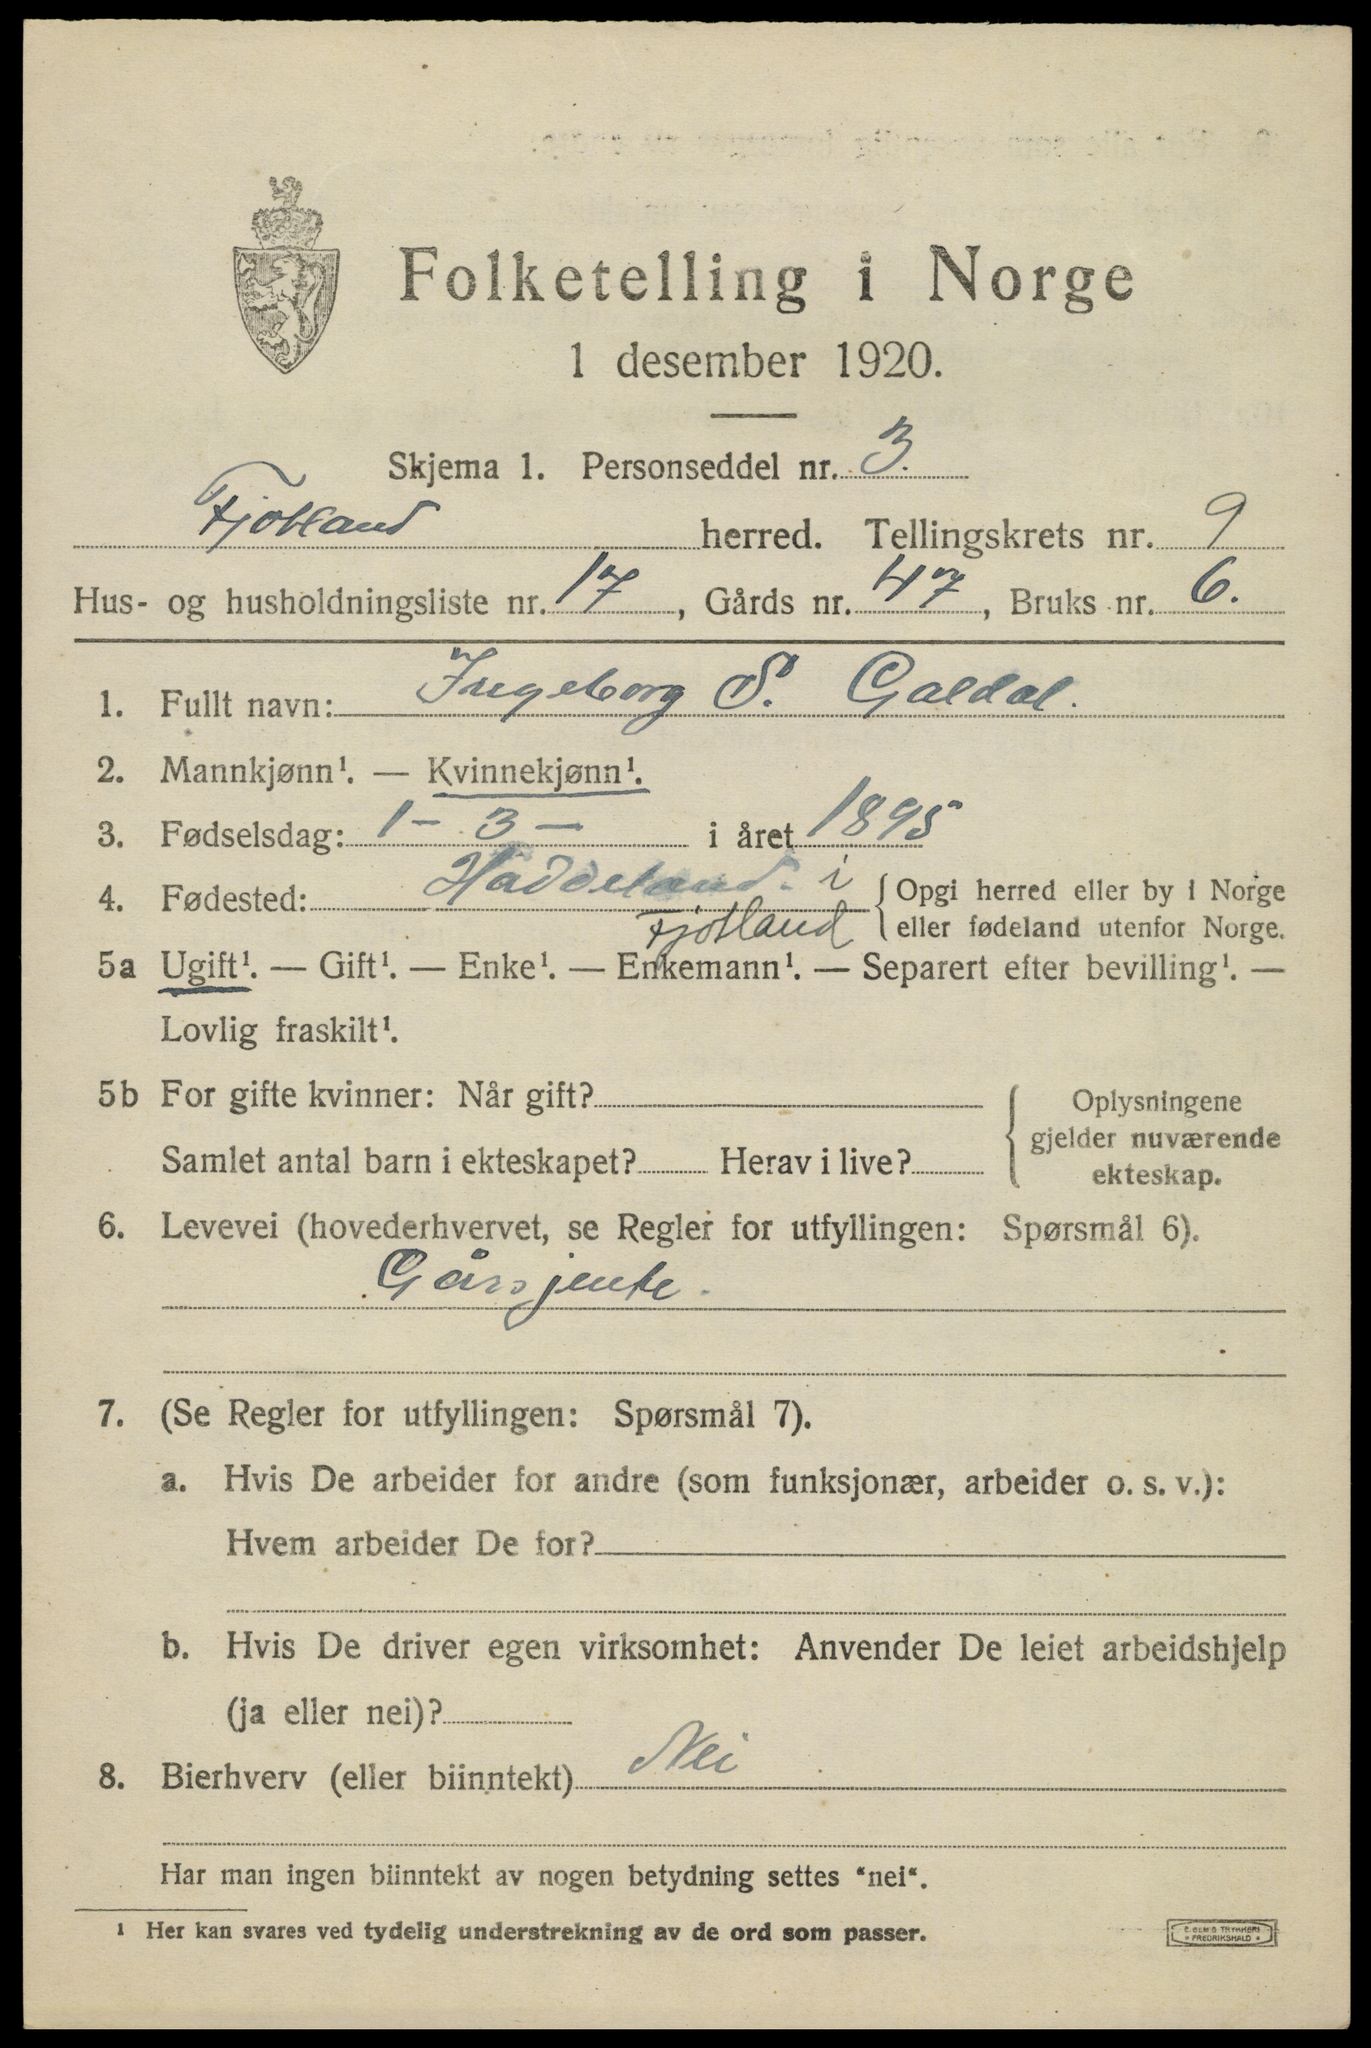 Folketelling i Norge
1 desember 1920.
Skjema 1. Personseddel nr. 3.
Fjotland herred. Tellingskrets nr. 9
Hus- og husholdningsliste nr. 17, Gårds nr. 47, Bruks nr. 6.
1. Fullt navn: Ingeborg S. Galdal.
2. Mannkjønn¹. — Kvinnekjønn¹.
3. Fødselsdag: 1 – 3 – i året 1895
4. Fødested: Haddeland i Fjotland { Opgi herred eller by i Norge
eller fødeland utenfor Norge.
5a Ugift¹. — Gift¹. — Enke¹. — Enkemann¹. — Separert efter bevilling¹. —
Lovlig fraskilt¹.
5b For gifte kvinner: Når gift? { Oplysningene
gjelder nuværende
Samlet antal barn i ekteskapet? Herav i live? ekteskap.
6. Levevei (hovederhvervet, se Regler for utfyllingen: Spørsmål 6).
Gårsjente.
7. (Se Regler for utfyllingen: Spørsmål 7).
a. Hvis De arbeider for andre (som funksjonær, arbeider o. s. v.):
Hvem arbeider De for?
b. Hvis De driver egen virksomhet: Anvender De leiet arbeidshjelp
(ja eller nei)?
8. Bierhverv (eller biinntekt) Nei
Har man ingen biinntekt av nogen betydning settes "nei".
¹ Her kan svares ved tydelig understrekning av de ord som passer.
FREDRIKSHALD